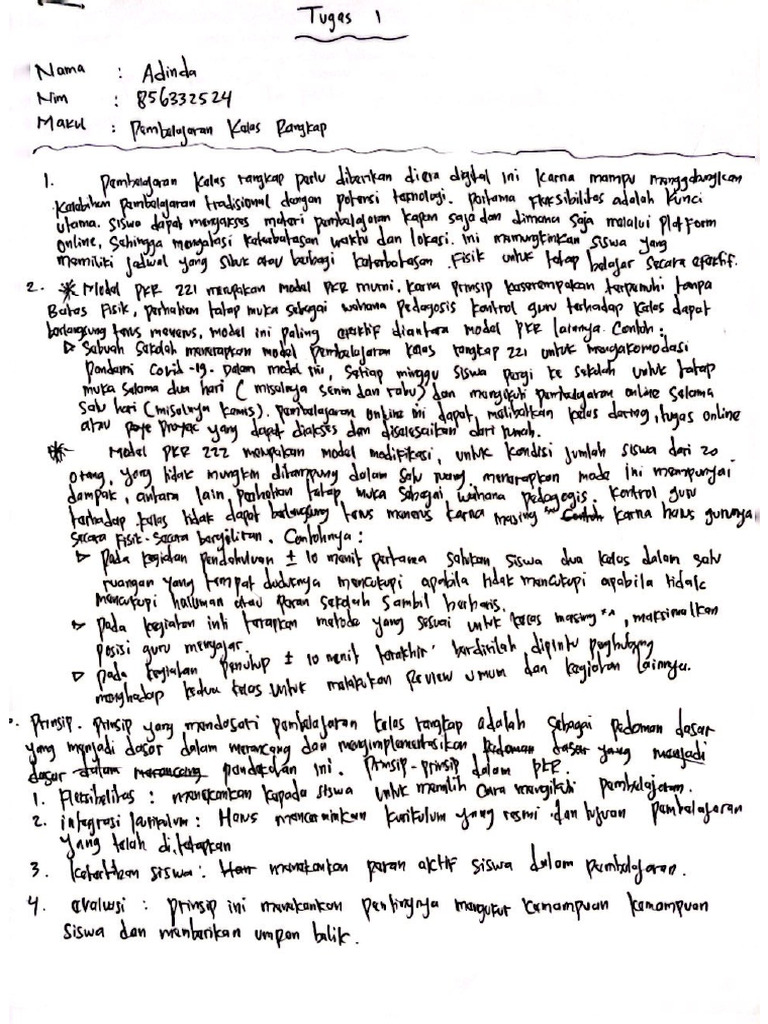 Tugas 1
Nama : Adinda
Nim : 856332524
Makul : Pembelajaran Kelas Rangkap
1. Pembelajaran kelas rangkap perlu diberikan diera digital ini karna mampu menggabungkan
kelebihan pembelajaran tradisional dengan potensi teknologi. Pertama fleksibilitas adalah kunci
utama. Siswa dapat mengakses materi pembelajaran kapan saja dan dimana saja melalui platform
online, sehingga mengatasi keterbatasan waktu dan lokasi. Ini memungkinkan siswa yang
memiliki jadwal yang sibuk atau berbagi keterbatasan fisik untuk tetap belajar secara efektif.
2. * Model PKR 221 merupakan model PKR murni. karna prinsip keserempakan terpenuhi tanpa
batas fisik, perhatian tatap muka sebagai wahana pedagosis kontrol guru terhadap kelas dapat
berlangsung terus menerus, model ini paling efektif diantara model PKR lainnya. Contoh :
▷ Sebuah sekolah menerapkan model pembelajaran kelas rangkap 221 untuk mengakomodasi
pandami Covid-19. Dalam model ini, setiap minggu siswa pergi ke sekolah untuk tatap
muka selama dua hari (misalnya senin dan rabu) dan mengikuti pembelajaran online selama
satu hari (misalnya kamis). pembelajaran online ini dapat melibatkan kelas daring, tugas online
atau proyek yang dapat diakses dan diselesaikan dari rumah.
* Model PKR 222 merupakan model modifikasi, untuk kondisi jumlah siswa dari 20
orang, yang tidak mungkin ditampung dalam satu ruang. menerapkan mode ini mempunyai
dampak, antara lain, perhatian tatap muka sebagai wahana pedagogis. kontrol guru
terhadap kelas tidak dapat berlangsung terus menerus karna masing" karna harus gurunya
secara fisik-secara bergiliran. Contohnya :
▷ Pada kegiatan pendahuluan ± 10 menit pertama satukan siswa dua kelas dalam satu
ruangan yang tempat duduknya mencukupi apabila tidak mencukupi apabila tidak
mencukupi halaman atau sekolah sambil berbaris.
▷ Pada kegiatan inti terapkan metode yang sesuai untuk kelas masing", maksimalkan
posisi guru mengajar.
▷ Pada kegiatan penutup ± 10 menit terakhir berdirilah dipintu penghubung
menghadap kedua kelas untuk melakukan review umum dan kegiatan lainnya.
. Prinsip-prinsip yang mendasati pembelajaran kelas rangkap adalah sebagai pedoman dasar
yang menjadi dasar dalam merancang dan mengimplementasikan pedoman dasar yang menjadi
dasar dalam merancang pendekatan ini. Prinsip-prinsip dalam PKR.
1. Fleksibelitas : menekankan kepada siswa untuk memilih cara mengikuti pembelajaran.
2. integrasi kurikulum : Harus mencerminkan kurikulum yang resmi dan tujuan pembelajaran
yang telah ditetapkan
3. siswa : menekankan peran aktif siswa dalam pembelajaran.
4. evaluasi : prinsip ini menekankan pentingnya mengukur kemampuan kemampuan
siswa dan memberikan umpan balik.